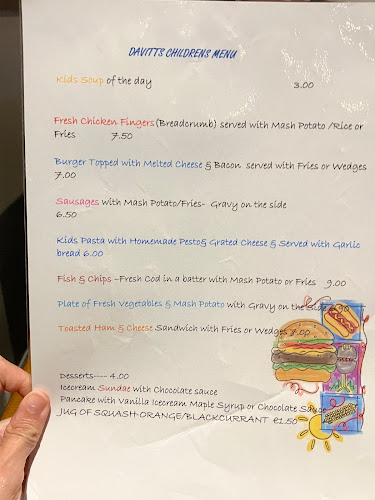 DAVITTS CHILDRENS MENU
Kids Soup of the day 3.00
Fresh Chicken Fingers(Breadcrumb) served with Mash Potato /Rice or
Fries 7.50
Burger Topped with Melted Cheese & Bacon served with Fries or Wedges
7.00
Sausages with Mash Potato/Fries- Gravy on the side
6.50
Kids Pasta with Homemade Pesto& Grated Cheese & Served with Garlic
bread 6.00
Fish & Chips -Fresh Cod in a batter with Mash Potato or Fries 9.00
Plate of Fresh Vegetables & Mash Potato with Gravy on the side
Toasted Ham & Cheese Sandwich with Fries or Wedges 7.00
Desserts---- 4.00
Icecream Sundae with Chocolate sauce
Pancake with Vanilla Icecream Maple Syrup or Chocolate Sauce
JUG OF SQUASH-ORANGE/BLACKCURRANT €1.50